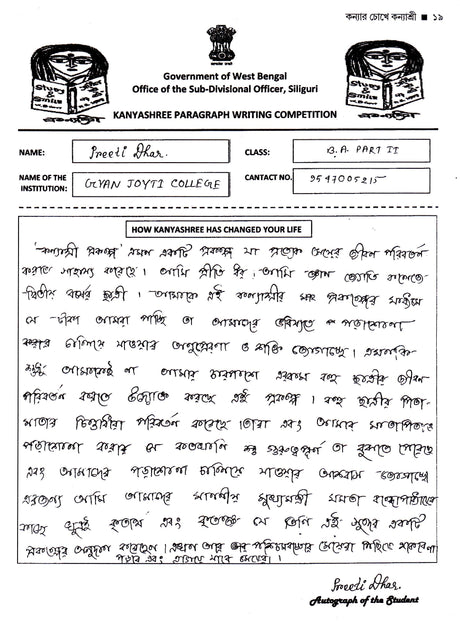 কন্যার চোখে কন্যাশ্রী ■ ১৯
Government of West Bengal
Office of the Sub-Divisional Officer, Siliguri
KANYASHREE PARAGRAPH WRITING COMPETITION
Study & Smile
NAME: Preeti Dhar. CLASS: B.A. PART II
NAME OF THE INSTITUTION: GYAN JOYTI COLLEGE CANTACT NO. 9547005215
HOW KANYASHREE HAS CHANGED YOUR LIFE
"কন্যাশ্রী প্রকল্প" এমন একটি প্রকল্প যা প্রত্যেক মেয়ের জীবন পরিবর্তন
করতে সাহায্য করেছে। আমি প্রীতি ধর। আমি জ্ঞান জ্যোতি কলেজে
দ্বিতীয় বর্ষের ছাত্রী। আমাকে এই কন্যাশ্রীর মত প্রকল্পের মাধ্যমে
যে টাকা আমরা পাচ্ছি তা আমাদের ভবিষ্যতে পড়াশোনা
করার চালিয়ে যাওয়ার অনুপ্রেরণা ও শক্তি জোগাচ্ছে। এমনকি
আমাকেই না আমার চারপাশে এরকম বহু ছাত্রীর জীবন
পরিবর্তন করতে করছে এই প্রকল্প। বহু ছাত্রীর পিতা-
মাতার চিন্তাধারা পরিবর্তন করেছে তারা এবং আমার মাতাপিতাও
পড়াশোনা করার যে কতখানি গুরুত্বপূর্ণ তা বুঝতে পেরেছে
এবং আমাদের পড়াশোনা চালিয়ে যাওয়ার আশ্বাস জোগাচ্ছে
এরজন্য আমি আমাদের মাননীয় মুখ্যমন্ত্রী মমতা বন্দোপাধ্যায়ের
কাছে খুবই কৃতার্থ এবং কৃতজ্ঞ যে তিনি এই সুন্দর একটি
প্রকল্পের করেছেন। এখন আর পশ্চিমবঙ্গের মেয়েরা পিছিয়ে থাকবেনা
এবং এগিয়ে যাবে মেয়েরা।
Preeti Dhar.
Autograph of the Student